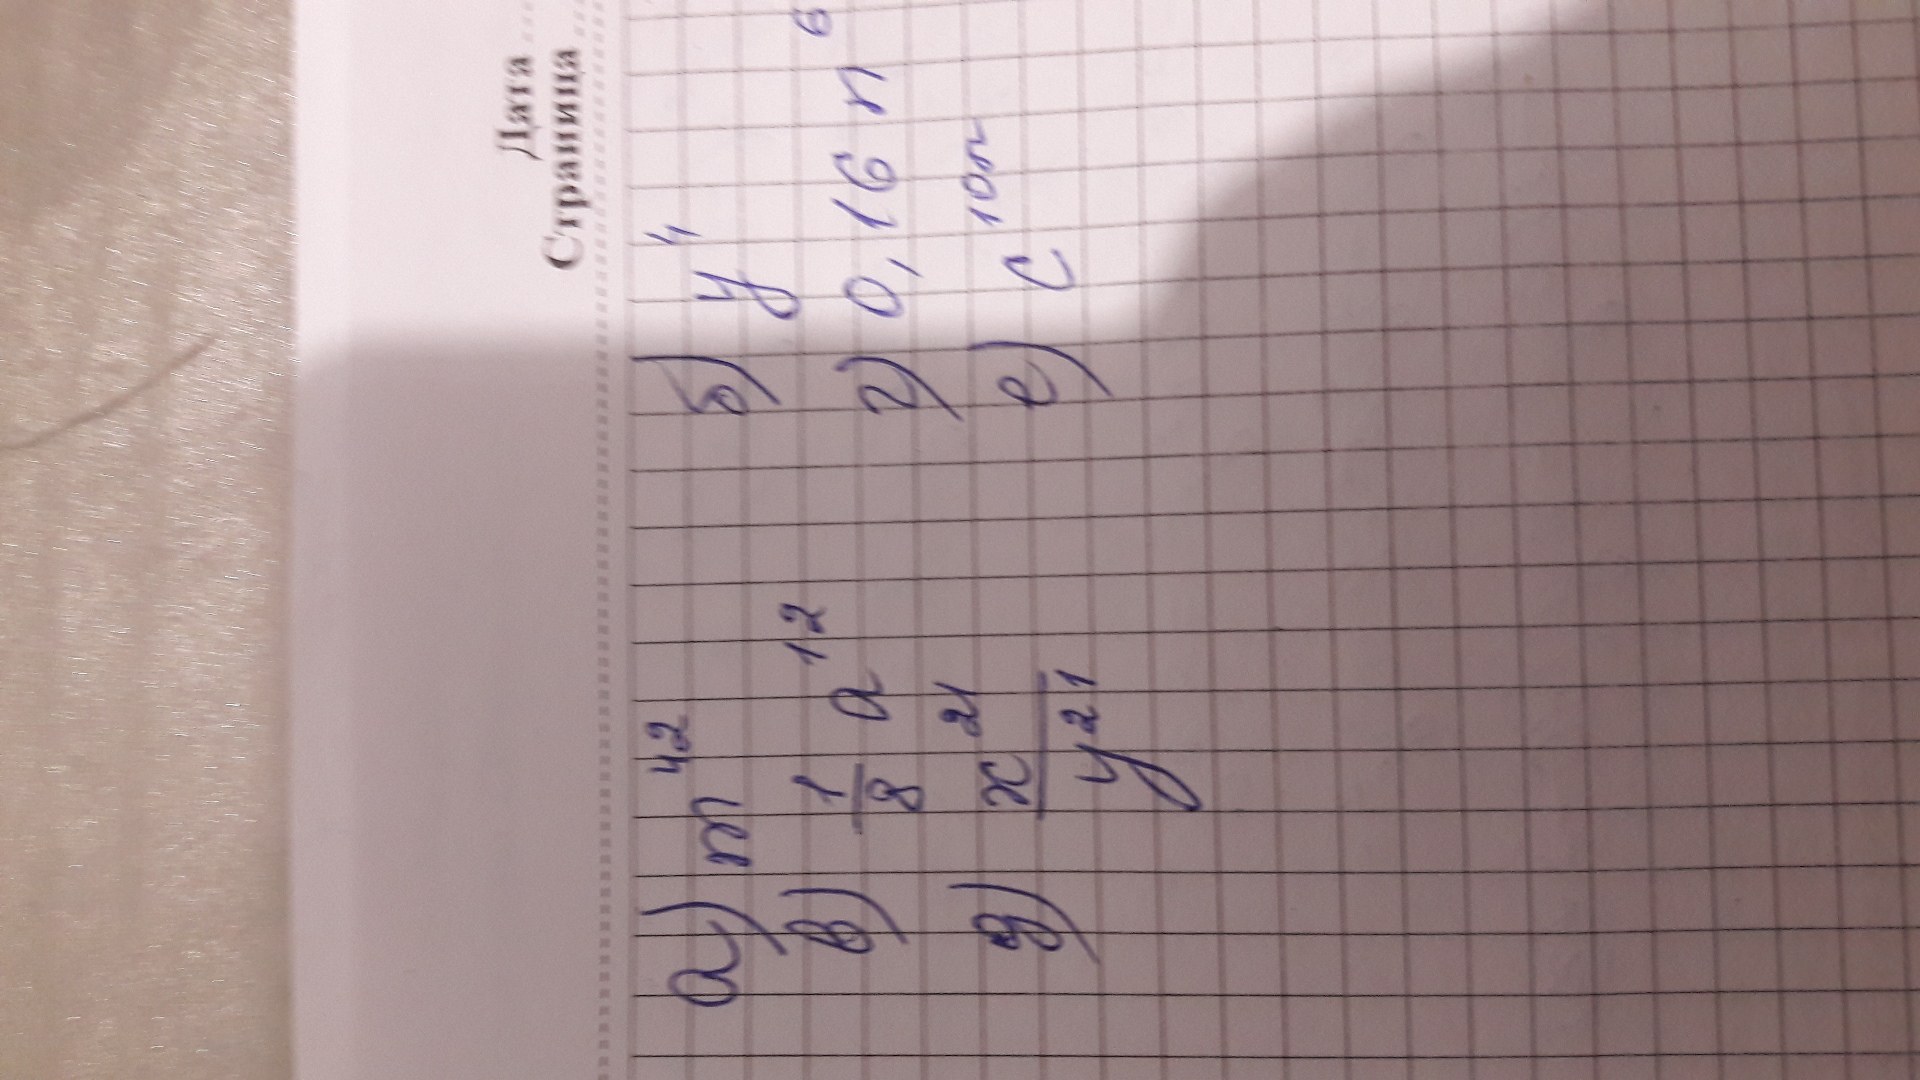 Дата
Страница
а) m⁴² б) y⁴
в) 1/8 a¹² г) 0,16 n⁶
д) x²¹/y²¹ е) c¹⁰ⁿ